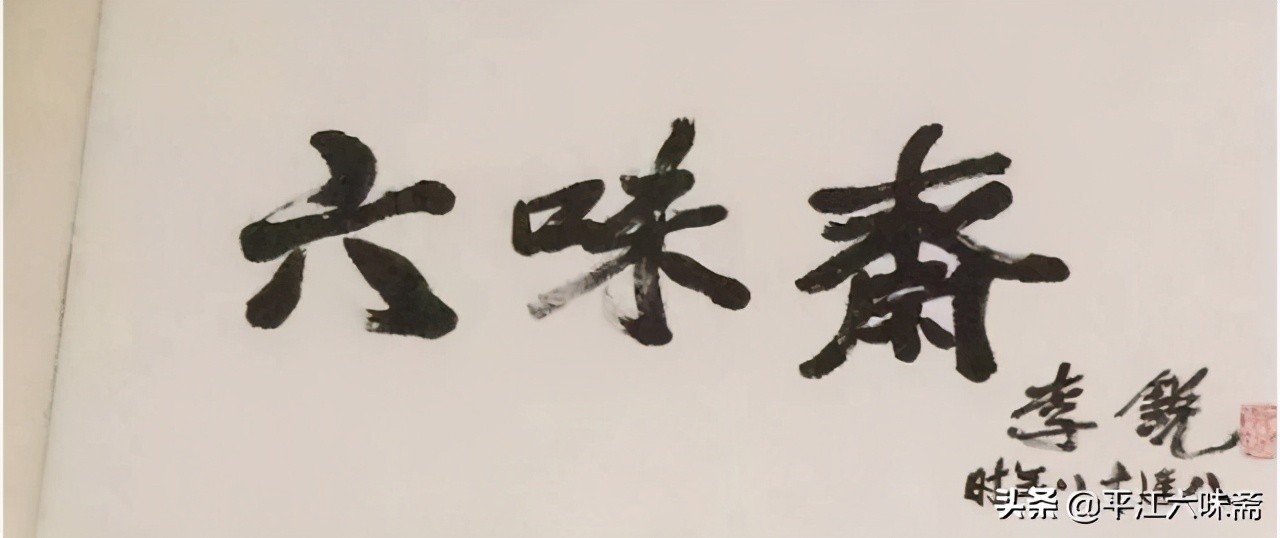 六味斋
李銳
时年八十
头条 @平江六味斋